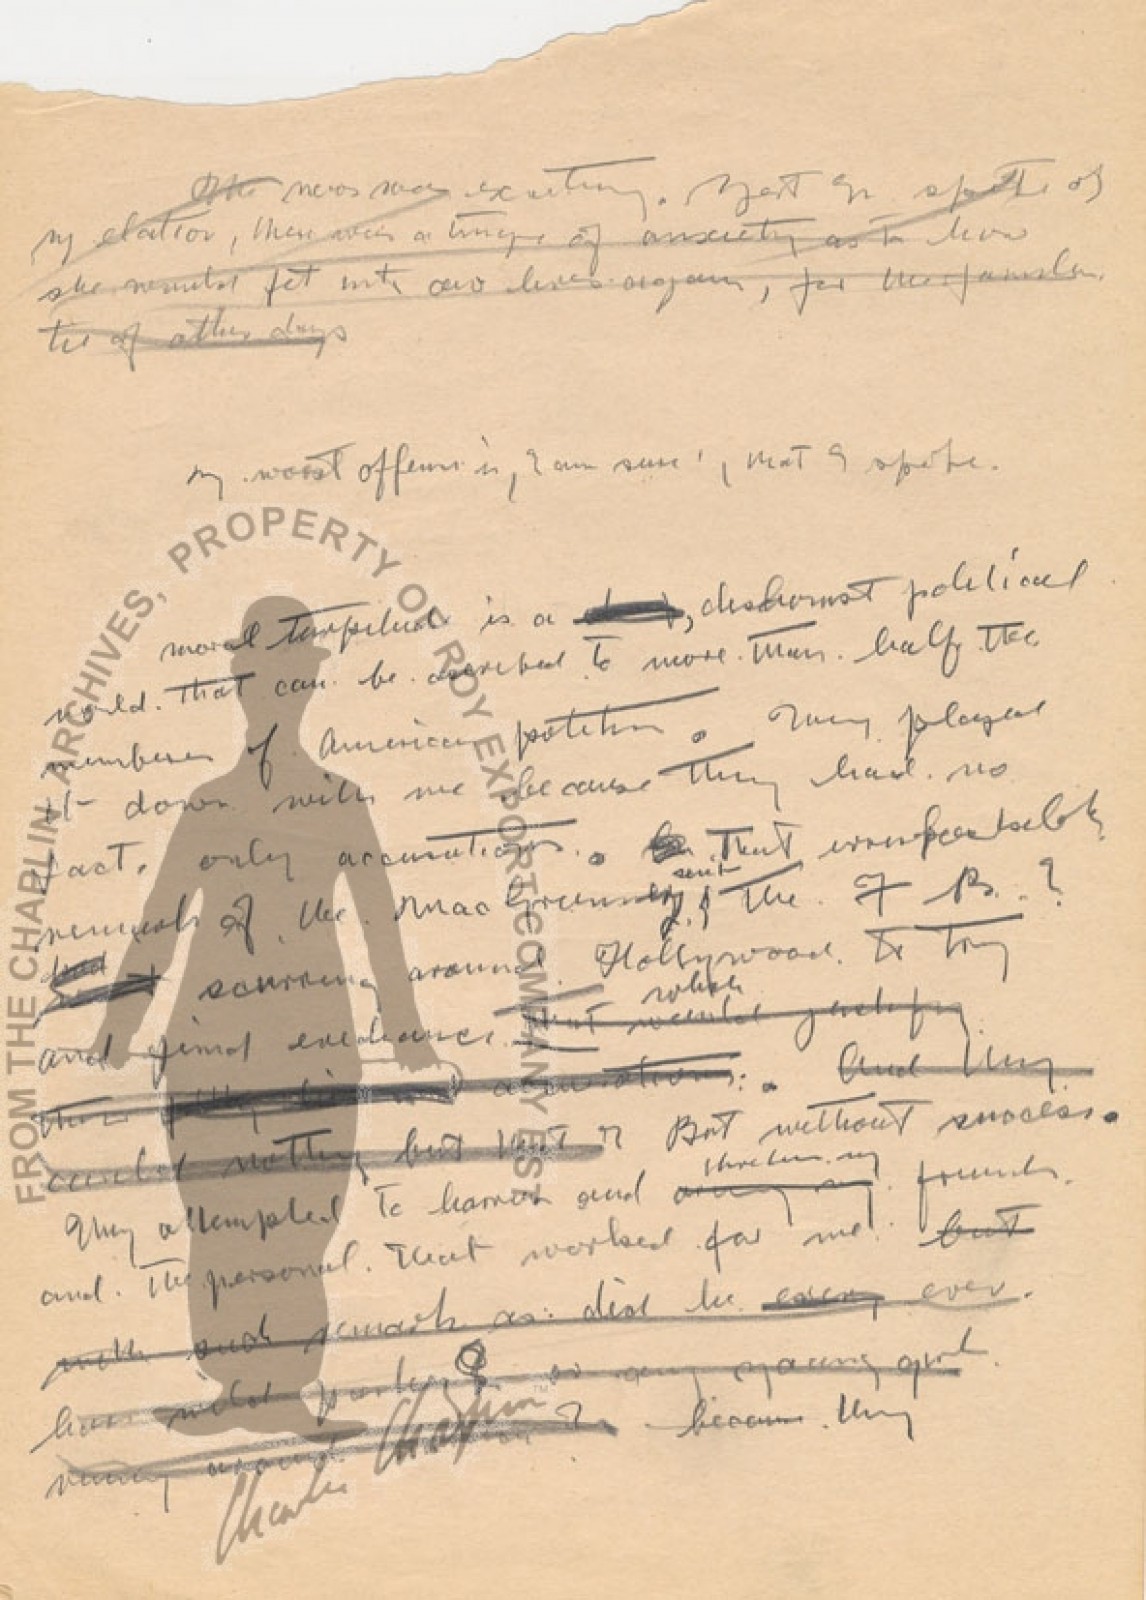 The news was exciting. Yet in spite of
my elation, there was a tinge of anxiety as to how
she would fit into our lives again, for the familiar
tie of other days
my worst offense is, I am sure, that I spoke.
moral turpitude is a , dishonest political
world that can be ascribed to more than half the
members of American politics. They played
it down with me because they had no
fact, only accusations. That
of the sent the F B.?
had scurring around Hollywood to try
and find evidence which
that would justify
their accusations. And they
could nothing but that? But without success.
They attempted to harrass and threaten my
friends.
and the personal that worked for me. but
with such remarks as: did he ever
have wild parties or any young girls
running around? because they
FROM THE CHAPLIN ARCHIVES, PROPERTY OF ROY EXPORT COMPANY EST
Charlie Chaplin ™